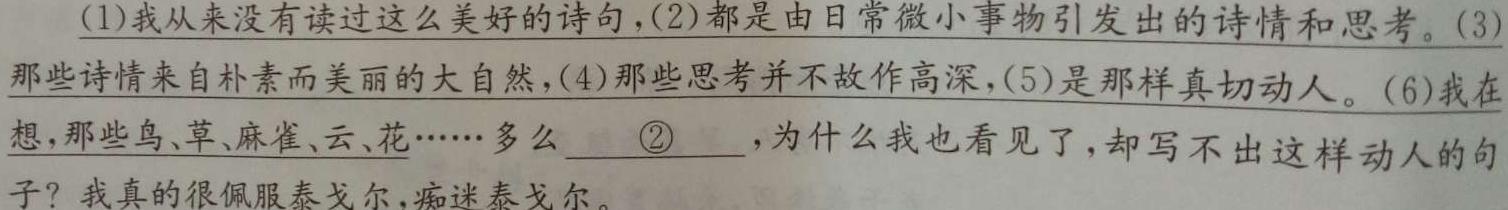 (1)我从来没有读过这么美好的诗句,(2)都是由日常微小事物引发出的诗情和思考。(3)
那些诗情来自朴素而美丽的大自然,(4)那些思考并不故作高深,(5)是那样真切动人。(6)我在
想,那些鸟、草、麻雀、云、花……多么 ② ,为什么我也看见了,却写不出这样动人的句
子?我真的很佩服泰戈尔,痴迷泰戈尔。